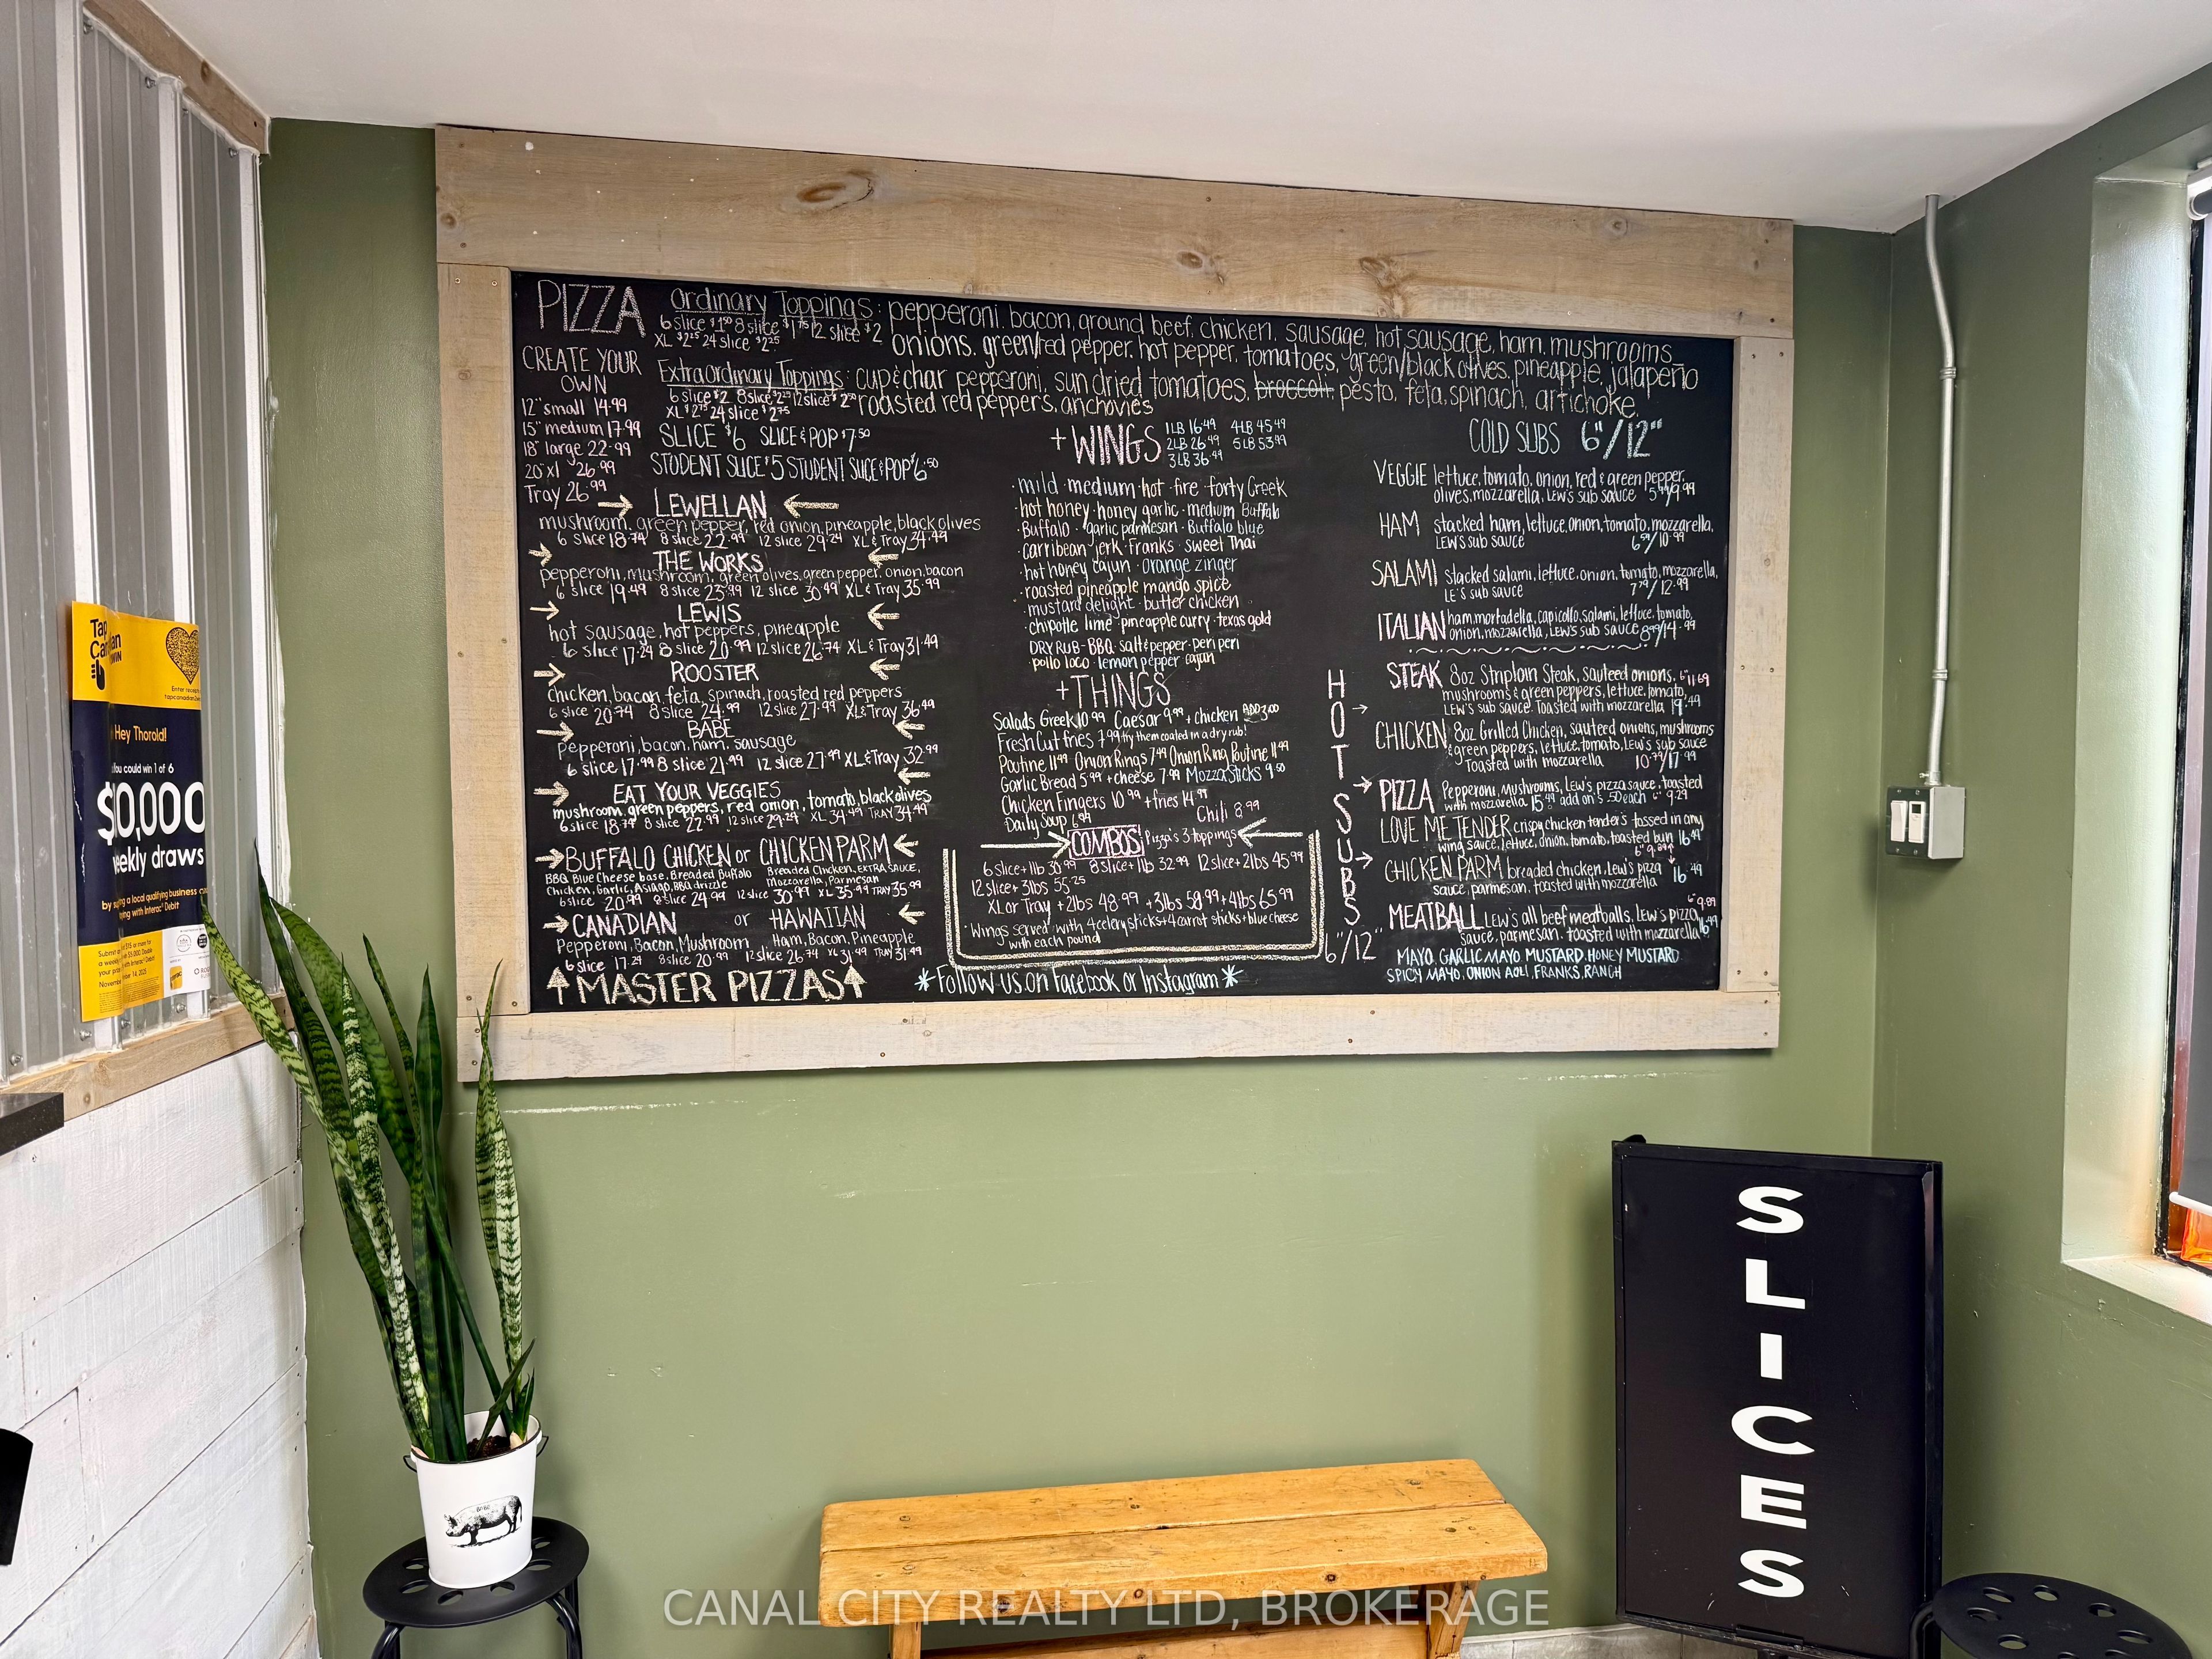 PIZZA
Ordinary Toppings: pepperoni, bacon, ground beef, chicken, sausage, hot sausage, ham, mushrooms
6 slice $1.50 8 slice $1.75 12 slice $2
XL $2.25 24 slice $2.25
onions, green/red pepper, hot pepper, tomatoes, green/black olives, pineapple, jalapeño
ExtraOrdinary Toppings: cup & char pepperoni, sun dried tomatoes, broccoli, pesto, feta, spinach, artichoke,
6 slice $2 8 slice $2.25 12 slice $2.50
XL $2.75 24 slice $2.75
roasted red peppers, anchovies
CREATE YOUR
OWN
12" small 14.99
15" medium 17.99
18" large 22.99
20" xl 26.99
Tray 26.99
SLICE $6 SLICE & POP $7.50
STUDENT SLICE $5 STUDENT SLICE & POP $6.50
→ LEWELLAN ←
mushroom, green pepper, red onion, pineapple, black olives
6 slice 18.74 8 slice 22.99 12 slice 29.24 XL & Tray 34.49
→ THE WORKS ←
pepperoni, mushroom, green olives, green pepper, onion, bacon
6 slice 19.49 8 slice 23.99 12 slice 30.49 XL & Tray 35.99
→ LEWIS ←
hot sausage, hot peppers, pineapple
6 slice 17.24 8 slice 20.99 12 slice 26.74 XL & Tray 31.49
→ ROOSTER ←
chicken, bacon, feta, spinach, roasted red peppers
6 slice 20.74 8 slice 24.99 12 slice 27.99 XL & Tray 36.49
→ BABE ←
pepperoni, bacon, ham, sausage
6 slice 17.99 8 slice 21.99 12 slice 27.99 XL & Tray 32.99
→ EAT YOUR VEGGIES ←
mushroom, green peppers, red onion, tomato, black olives
6 slice 18.74 8 slice 22.99 12 slice 29.24 XL 34.49 TRAY 34.49
→ BUFFALO CHICKEN or CHICKEN PARM ←
BBQ Blue Cheese base, Breaded Buffalo
Chicken, Garlic, Asiago, BBQ drizzle
Breaded Chicken, EXTRA SAUCE,
Mozzarella, Parmesan
6 slice 20.99 8 slice 24.99 12 slice 30.99 XL 35.99 TRAY 35.99
→ CANADIAN or HAWAIIAN ←
Pepperoni, Bacon, Mushroom Ham, Bacon, Pineapple
6 slice 17.24 8 slice 20.99 12 slice 26.74 XL 31.49 TRAY 31.49
↑ MASTER PIZZAS ↑
+ WINGS
1LB 16.49 4LB 45.49
2LB 26.49 5LB 53.99
3LB 36.49
· mild · medium · hot · fire · forty Creek
· hot honey · honey garlic · medium Buffalo
· Buffalo · garlic parmesan · Buffalo blue
· carribean jerk · Franks · sweet Thai
· hot honey cajun · orange zinger
· roasted pineapple mango spice
· mustard delight · butter chicken
· chipotle lime · pineapple curry · texas gold
DRY RUB - BBQ · salt & pepper · peri peri
· pollo loco · lemon pepper · cajun
+ THINGS
Salads Greek 10.99 Caesar 9.99 + chicken ADD 3.00
Fresh Cut fries 7.99 try them coated in a dry rub!
Poutine 11.99 Onion Rings 7.49 Onion Ring Poutine 11.99
Garlic Bread 5.99 + cheese 7.99 Mozza Sticks 9.50
Chicken Fingers 10.99 + fries 14.99
Daily Soup 6.99
Chili 8.99
→ COMBOS Pizza's 3 toppings ←
6 slice + 1lb 30.99 8 slice + 1lb 32.99 12 slice + 2lbs 45.99
12 slice + 3lbs 55.25
XL or Tray + 2lbs 48.99 + 3lbs 58.99 + 4lbs 65.99
· Wings served with 4 celery sticks + 4 carrot sticks + blue cheese
with each pound
* Follow us on Facebook or Instagram *
COLD SUBS 6"/12"
VEGGIE lettuce, tomato, onion, red & green pepper,
olives, mozzarella, LEW's sub sauce 5.99/9.99
HAM stacked ham, lettuce, onion, tomato, mozzarella,
LEW'S sub sauce 6.99/10.99
SALAMI stacked salami, lettuce, onion, tomato, mozzarella,
LE'S sub sauce 7.99/12.99
ITALIAN ham, mortadella, capicollo, salami, lettuce, tomato,
onion, mozzarella, LEW's sub sauce 8.99/14.99
HOT SUBS 6"/12"
STEAK 8oz Striploin Steak, sauteed onions, 6" 11.69
mushrooms & green peppers, lettuce, tomato,
LEW's sub sauce. Toasted with mozzarella 19.49
CHICKEN 8oz Grilled Chicken, sauteed onions, mushrooms
& green peppers, lettuce, tomato, Lew's sub sauce
Toasted with mozzarella 10.79/17.99
PIZZA Pepperoni, Mushrooms, Lew's pizza sauce, toasted
with mozzarella 15.49 add on's .50 each 6" 9.29
LOVE ME TENDER crispy chicken tenders tossed in any
wing sauce, lettuce, onion, tomato, toasted bun 16.49
6" 9.89
CHICKEN PARM breaded chicken, Lew's pizza 16.49
sauce, parmesan, toasted with mozzarella
6" 9.89
MEATBALL LEW's all beef meatballs, Lew's pizza
sauce, parmesan, toasted with mozzarella 16.49
MAYO, GARLIC MAYO MUSTARD, HONEY MUSTARD
SPICY MAYO, ONION AOLI, FRANKS, RANCH
Hey Thorold!
You could win 1 of 6
$10,000
weekly draws
SLICES
BABE
CANAL CITY REALTY LTD, BROKERAGE